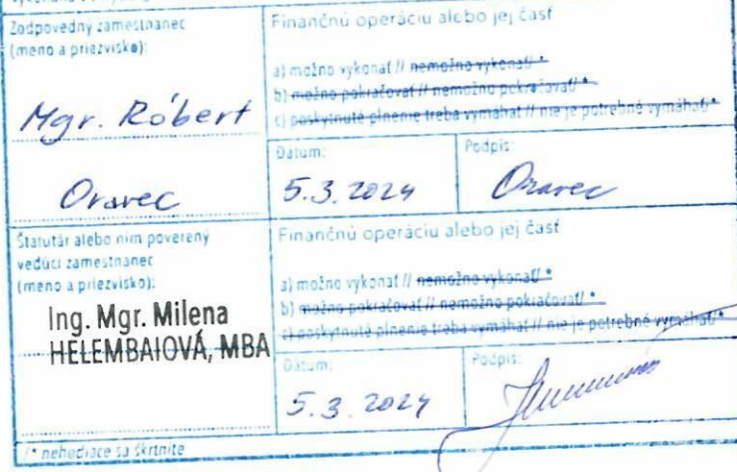 Zodpovedný zamestnanec
(meno a priezvisko):
Mgr. Róbert
Oravec
Finančnú operáciu alebo jej časť
a) možno vykonať // nemožno vykonať/ *
b) možno pokračovať // nemožno pokračovať/ *
c) poskytnuté plnenie treba vymáhať // nie je potrebné vymáhať/ *
Dátum:
5.3.2024
Podpis:
Oravec
Štatutár alebo ním poverený
vedúci zamestnanec
(meno a priezvisko):
Ing. Mgr. Milena
HELEMBAIOVÁ, MBA
Finančnú operáciu alebo jej časť
a) možno vykonať // nemožno vykonať/ *
b) možno pokračovať // nemožno pokračovať/ *
c) poskytnuté plnenie treba vymáhať // nie je potrebné vymáhať/ *
Dátum:
5.3.2024
Podpis:
/* nehodiace sa škrtnite